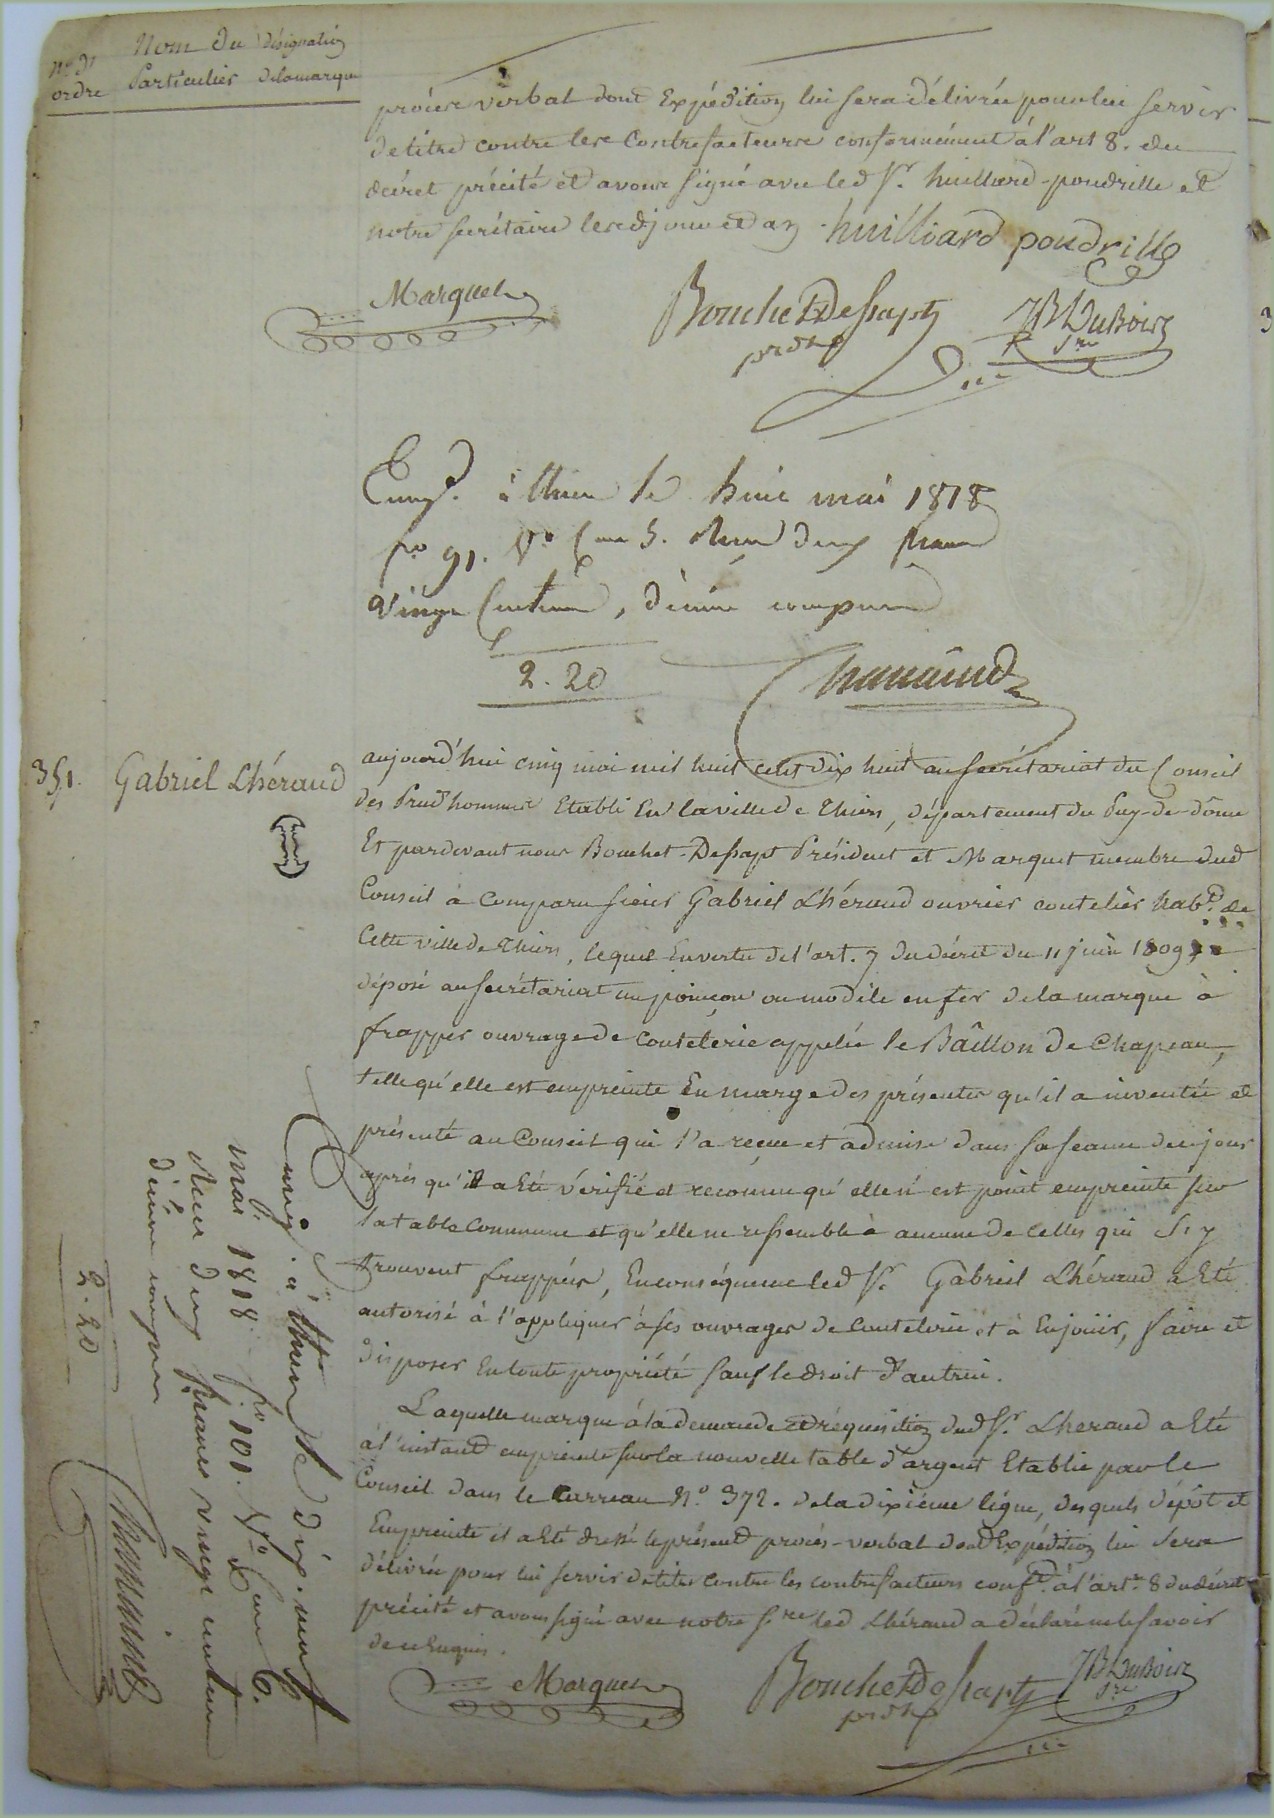 N° d' Nom du désignation
ordre Particulier de la marque
procès verbal dont Expédition lui sera délivrée pour lui servir
de titre contre les Contrefacteurs conformément à l'art 8. du
décret précité et avons signé avec led Sr. huilliard-poudrille et
notre secrétaire lesd jour et an huilliard poudrille
Marquet Bouchet Dessapt JB Dubois
prdt Sre
Enrg. à Thiers le huit mai 1818
fo 91. Vo Cse 5. Reçu deux francs
vingt Centimes, dixième compris
2.20
351. Gabriel Lhéraud
aujourd'hui cinq mai mil huit cent dix huit au secrétariat du Conseil
des Prud'hommes Etabli En la ville de Thiers, département du Puy-de-dôme
Et pardevant nous Bouchet-Dessapt Président et Marquet membre dud
Conseil a comparu sieur Gabriel Lhéraud ouvrier coutelier habt. de
Cette ville de Thiers, lequel En vertu de l'art. 7 du décret du 11 juin 1809 a
déposé au secrétariat un poinçon ou modèle en fer de la marque à
frapper ouvrage de coutelerie appelée le Bâillon de Chapeau,
telle qu'elle est empreinte En marge des présentes qu'il a inventée et
présenté au Conseil qui l'a reçue et admise dans sa séance de ce jour
après qu'il a Eté vérifié et reconnu qu'elle n'est point empreinte sur
la table Commune et qu'elle ne ressemble à aucune de celles qui s'y
trouvent frappées, En conséquence led Sr. Gabriel Lhéraud a Eté
autorisé à l'appliquer à ses ouvrages de coutelerie et à En jouir, faire et
disposer En toute propriété sauf le droit d'autrui.
Laquelle marque à la demande et réquisition dud Sr. Lheraud a Eté
à l'instant empreinte sur la nouvelle table d'argent Etablie par le
Conseil dans le Carreau N.o 372. de la dixième ligne, desquels dépôt et
Empreinte il a Eté dressé le présent procès-verbal dont Expédition lui sera
délivrée pour lui servir de titre contre les contrefacteurs conft. à l'art. 8 du décret
précité et avons signé avec notre Sre led Lhéraud a déclaré ne le savoir
de ce Enquis.
Marquet Bouchet Dessapt JB Dubois
prdt Sre
Enrg. à Thiers le dix-neuf
mai 1818. fo. 101. Vo Cse 6.
Reçu deux francs vingt centimes
dixième compris
2.20